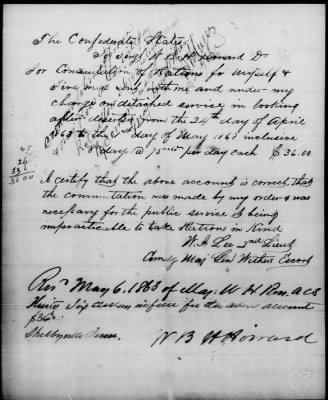 The Confederate States
To Sergt W. B. H. Howard Dr
For Commutation of Rations for Myself &
Five men with me and under my
charge on detached service in looking
after deserters from the 24th day of April
1863 to the day of May 1863 inclusive
days @ 75 cts per day each $36.00
48
24
336
36 00
I certify that the above account is correct, that
the commutation was made by my order & was
necessary for the public service it being
impracticable to take Rations in Kind
W. H. Lee 2nd Lieut
Comdg Maj Genl Withers Escort
Recd May 6, 1863 of Maj. W H Ross ACS
Thirty Six dollars in full for the above account
$36
Shelbyville Tenn.
W B H Howard